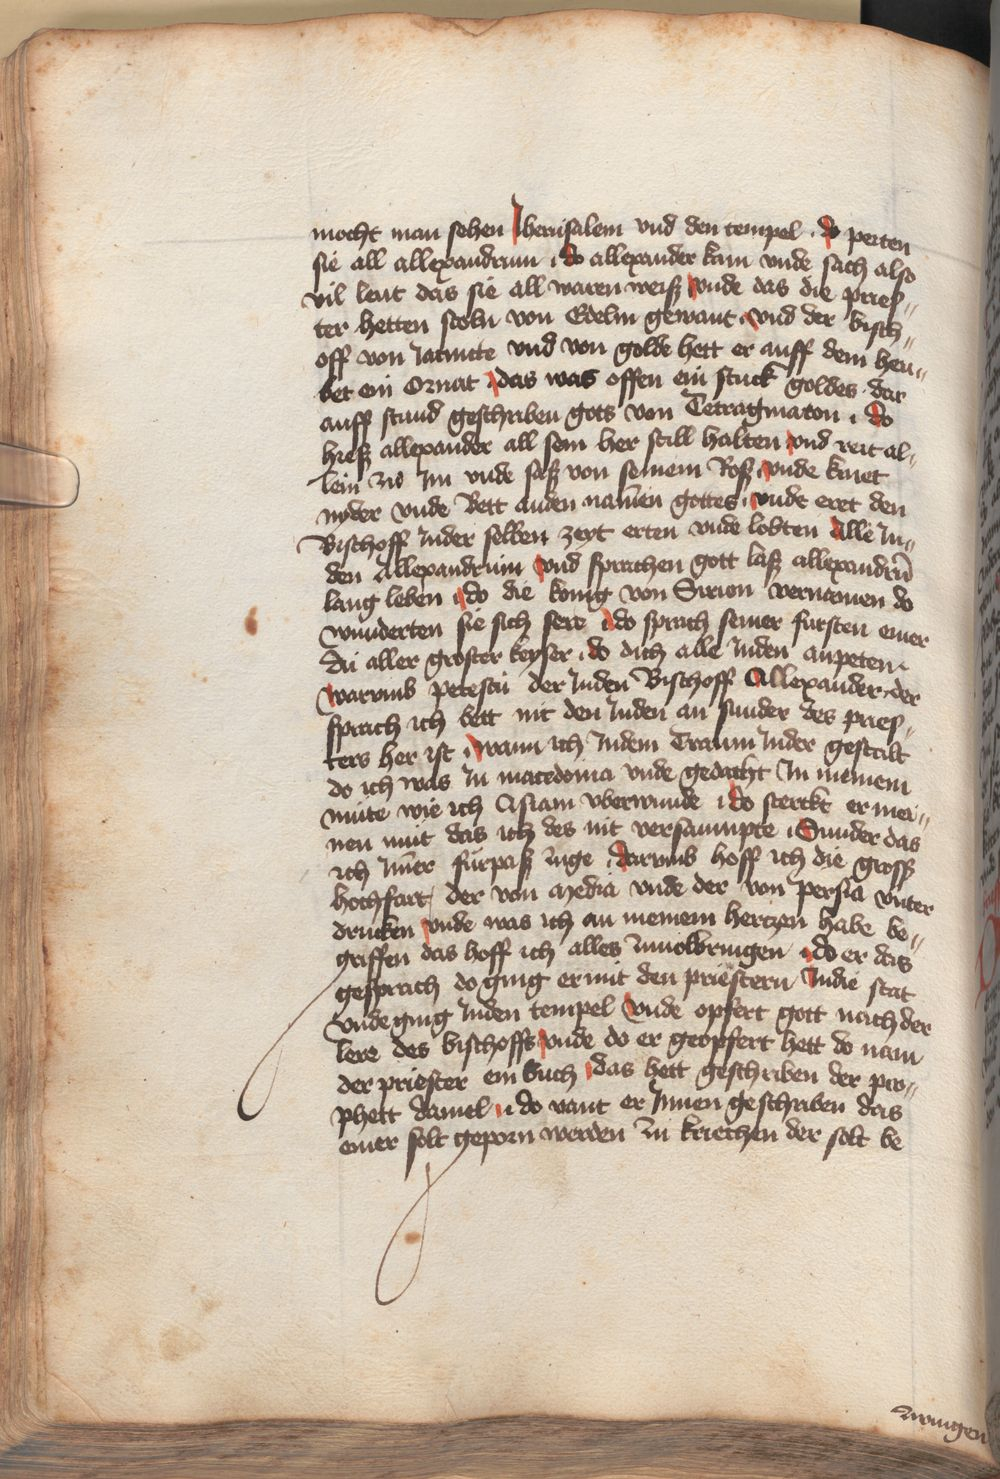 mocht man sehen Jherusalem vnd den tempel . do perten
sie all allexandrum . do allexander kam vnde sach also
vil leut das sie all waren weiß vnde das die pries„
ter hetten stoln von Edelm gewant . vnd der bisch„
off von Jacincte vnd von golde hett er auff dem heu„
bet ein Ornat . das was offen ein stuck goldes dar
auff stund geschriben gots von Tetragmaton . do
hieß allexander all sein her still halten vnd reit al„
lein zu Im vnde saß von seinem Roß . vnde kniet
nyder vnde Bett anden namen gottes . vnde eret den
Bischoff Inder selben zeyt erten vnde lobten Alle Iu„
den Allexandrum vnd sprachen gott laß allexandrū
lang leben . do die konig von Sirion vernamen do
wunderten sie sich sere . do sprach seiner fursten einer
du aller groster keyser . do dich alle Juden anpeten
warumb petestu der Juden Bischoff Allexander der
sprach ich bett nit den Juden an sunder des pries„
ters her ist . wann ich Indem Traum Inder gestalt
do ich was In macedonia vnde gedacht In meinem
mute wie ich Asiam vberwunde . do sterckt er mei„
nen mut das ich des nit versaumpte . Sunder das
ich Im̄er fürpaß ginge . darumb hoff ich die groß
hochfart der von Media vnde der von persia vnter
drucken vnde was ich an meinem hertzen habe be„
griffen das hoff ich alles zuuolbringen . do er das
gesprach do ging er mit den priestern Indie stat
vnde ging Inden tempel vnde opfert gott nach der
lere des bischoffs vnde do er geopfert hett do nam
der priester ein buch das hett geschriben der pro„
phett daniel . do vant er Innen geschriben das
einer solt geporn werden zu kriechen der solt be
zwingen